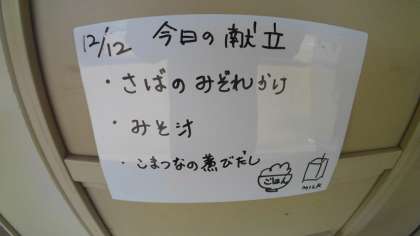 12/12 今日の献立
・さばのみぞれかけ
・みそ汁
・こまつなの煮びだし
ごはん
MILK